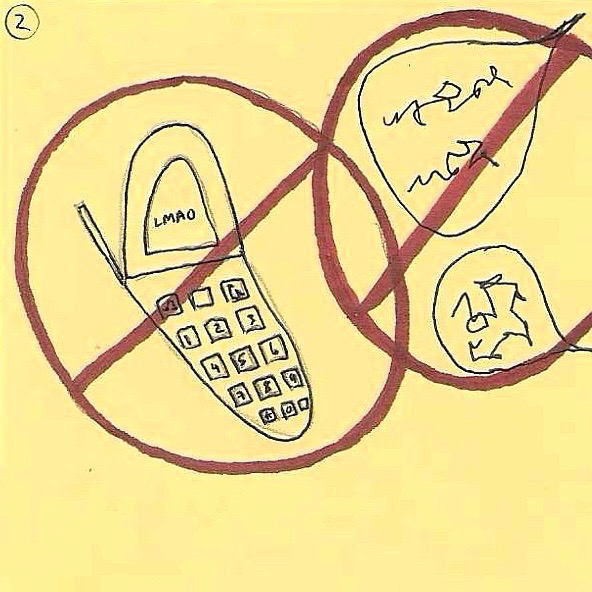 2
LMAO
1 2 3
4 5 6
7 8 9
* 0